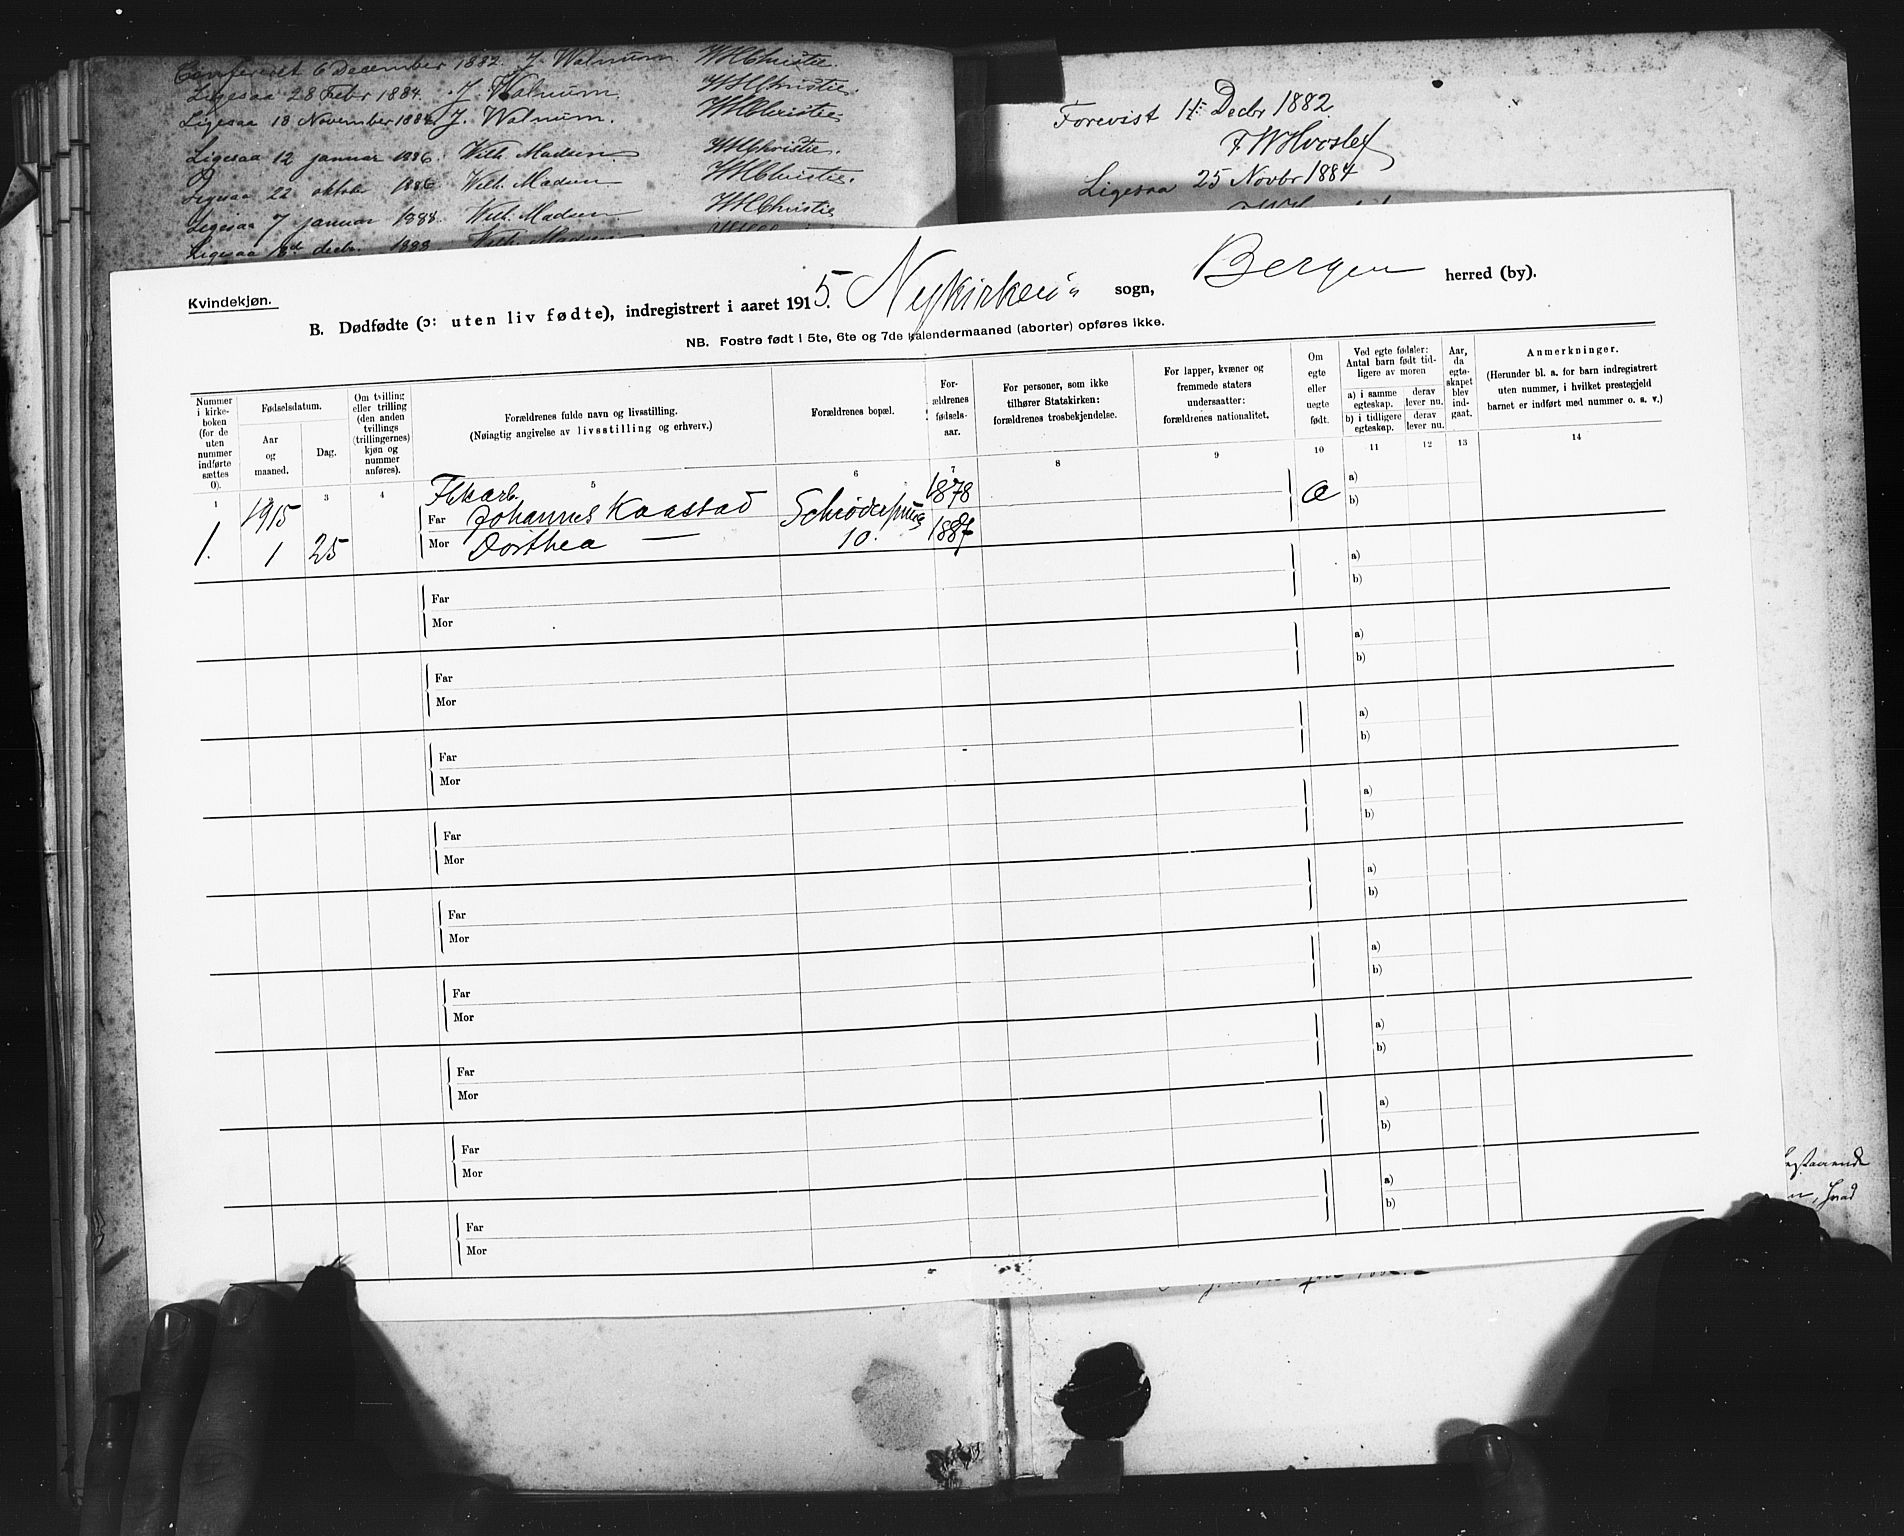 Confereret 6 December 1882. J. Walnum WHChristie.
Ligesaa 28 Febr 1884. J. Walnum WHChristie.
Ligesaa 18 November 1884 J. Walnum. WHChristie
Ligesaa 12 januar 1886. Wilh. Madsen WHChristie.
Ligesaa 22 oktober 1886 Wilh. Madsen WHChristie.
Ligesaa 7 januar 1888. Wilh. Madsen WHChristie
Ligesaa 18d decbr. 1888 Wilh. Madsen
Forevist 11: Decbr 1882
FWHvoslef
Ligesaa 25 Novbr 1884
Kvindekjøn.
B. Dødfødte (ɔ: uten liv fødte), indregistrert i aaret 1915. Nykirken's sogn, Bergen herred (by).
NB. Fostre født i 5te, 6te og 7de kalendermaaned (aborter) opføres ikke.
Nummer i kirkeboken (for de uten nummer indførte sættes 0).
Fødselsdatum.
Aar og maaned.
Dag.
Om tvilling eller trilling (den anden tvillings (trillingernes) kjøn og nummer anføres).
Forældrenes fulde navn og livsstilling.
(Nøiagtig angivelse av livsstilling og erhverv.)
Forældrenes bopæl.
Forældrenes fødselsaar.
For personer, som ikke tilhører Statskirken: forældrenes trosbekjendelse.
For lapper, kvæner og fremmede staters undersaatter: forældrenes nationalitet.
Om egte eller uegte født.
Ved egte fødsler: Antal barn født tidligere av moren
a) i samme egteskap. derav lever nu.
b) i tidligere egteskap. derav lever nu.
Aar, da egteskapet blev indgaat.
Anmerkninger.
(Herunder bl. a. for barn indregistrert uten nummer, i hvilket prestegjeld barnet er indført med nummer o. s. v.)
1 3 4 5 6 7 8 9 10 11 12 13 14
1915 1878 a)
Far Johannes Kaastad b)
1. 1 25 Mor Dorthea — 10. æ
Far a)
Mor b)
Far a)
Mor b)
Far a)
Mor b)
Far a)
Mor b)
Far a)
Mor b)
Far a)
Mor b)
Far a)
Mor b)
Far a)
Mor b)
Far a)
Mor b)
hvad